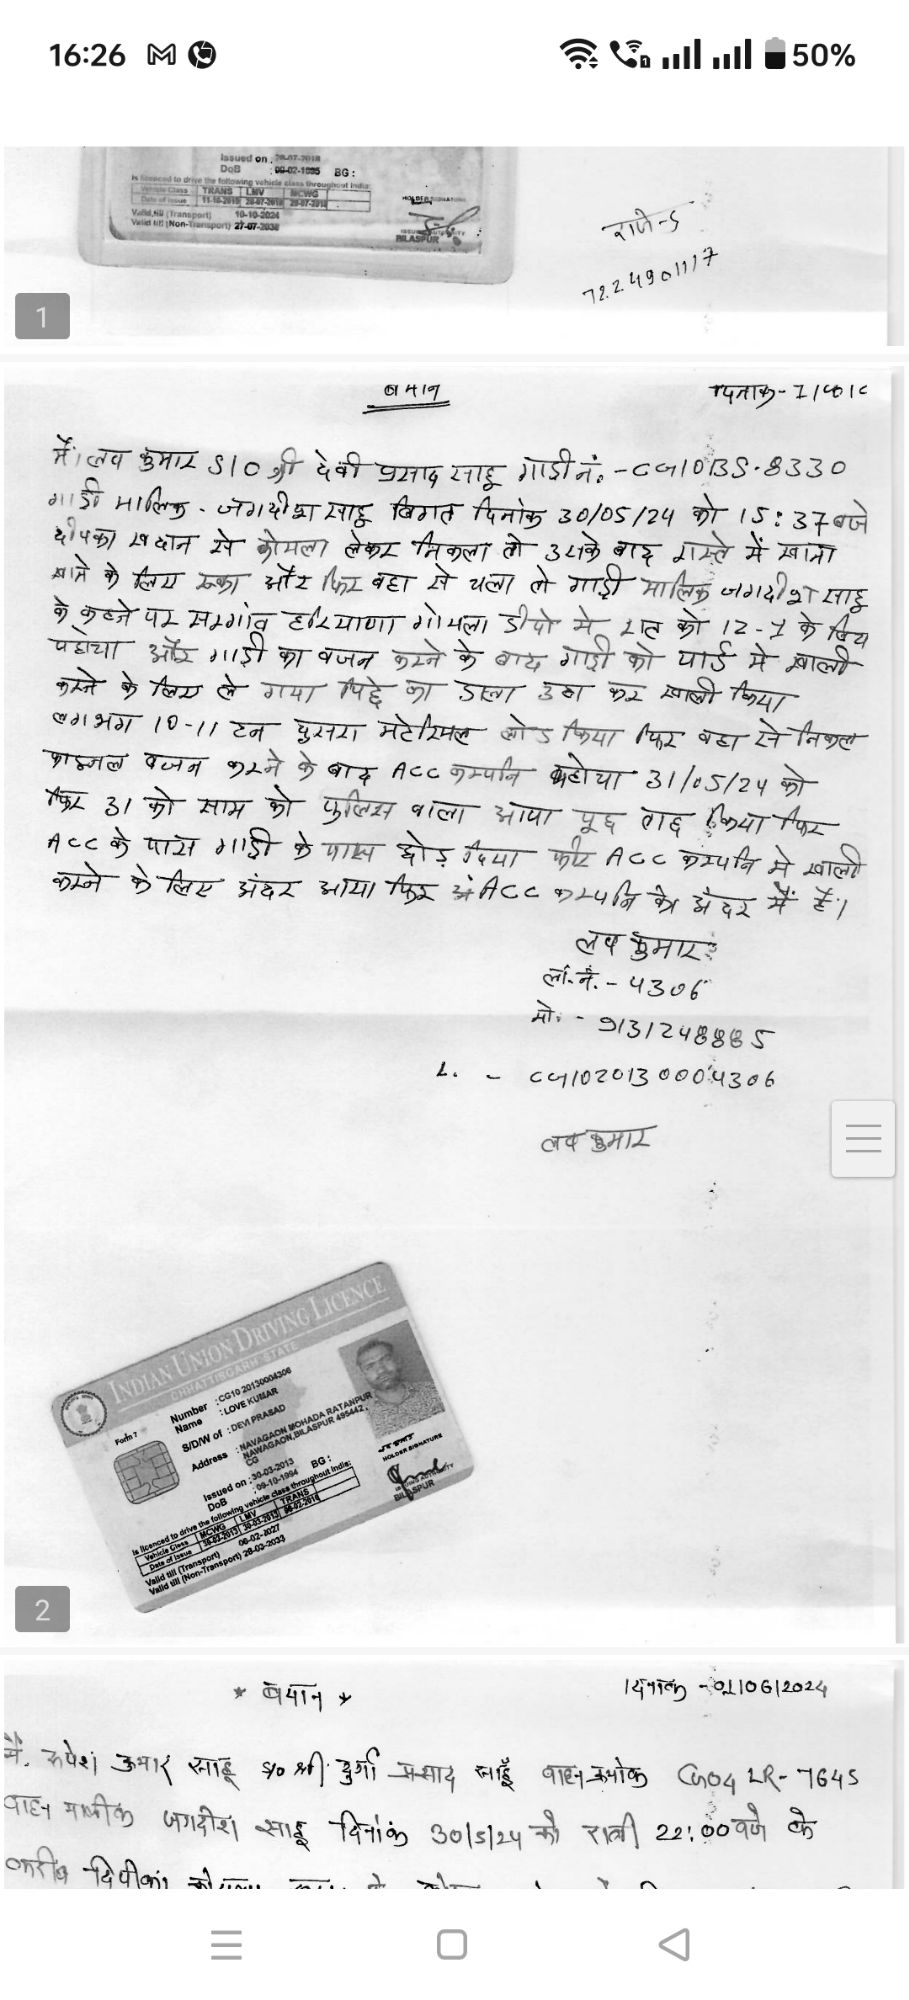 16:26 50%
Issued on : 28-07-2018
DoB : 09-02-1995 BG :
Is licenced to drive the following vehicle class throughout India:
Vehicle Class TRANS LMV MCWG
Date of Issue 11-10-2019 28-07-2018 28-07-2018
Valid till (Transport) 10-10-2024
Valid till (Non-Transport) 27-07-2038
HOLDER SIGNATURE
ISSUING AUTHORITY
BILASPUR
7224901117
1
बयान
दिनांक -
मैं लव कुमार S/O श्री देवी प्रसाद साहू गाडी नं. - CG10BS-8330
गाडी मालिक - जगदीश साहू विगत दिनांक 30/05/24 को 15:37 बजे
दीपका खदान से कोयला लेकर निकला तो उसके बाद रास्ते में खाना
खाने के लिए रुका और फिर वहा से चला तो गाड़ी मालिक जगदीश साहू
के कहने पर सरगांव हरियाणा कोयला डीपो मे रात को 12-1 के बिच
पहोचा और गाड़ी का वजन करने के बाद गाड़ी को यार्ड मे खाली
करने के लिए ले गया पिछे का डाला उठा कर खाली किया
लगभग 10-11 टन दुसरा मटेरियल लोड किया फिर वहा से निकल
फाइनल वजन करने के बाद ACC कम्पनि पहोचा 31/05/24 को
फिर 31 को साम को पुलिस वाला आया पूछ ताछ किया फिर
ACC के पास गाड़ी के पास छोड़ दिया और ACC कम्पनि मे खाली
करने के लिए अंदर आया फिर ACC कम्पनि के अंदर में हैं।
लव कुमार
ला.नं. - 4306
मो. - 9131248885
L. - CG1020130004306
लव कुमार
INDIAN UNION DRIVING LICENCE
CHHATTISGARH STATE
Form 7
Number : CG10 20130004306
Name : LOVE KUMAR
S/D/W of : DEVI PRASAD
Address : NAVAGAON MOHADA RATANPUR
NAWAGAON,BILASPUR 495442,
CG
Issued on : 30-03-2013
DoB : 09-10-1994 BG :
Is licenced to drive the following vehicle class throughout India:
Vehicle Class MCWG LMV TRANS
Date of Issue 30-03-2013 30-03-2013
Valid till (Transport) 06-02-2027
Valid till (Non-Transport) 28-03-2033
HOLDER SIGNATURE
ISSUING AUTHORITY
BILASPUR
2
* बयान *
दिनांक - 01/06/2024
मैं. रुपेश कुमार साहू S/o श्री दुर्गा प्रसाद साहू वाहन क्रमांक CG04 LR-7645
वाहन मालीक जगदीश साहू दिनांक 30/5/24 को रात्री 22:00 बजे के
करीब दिपीका